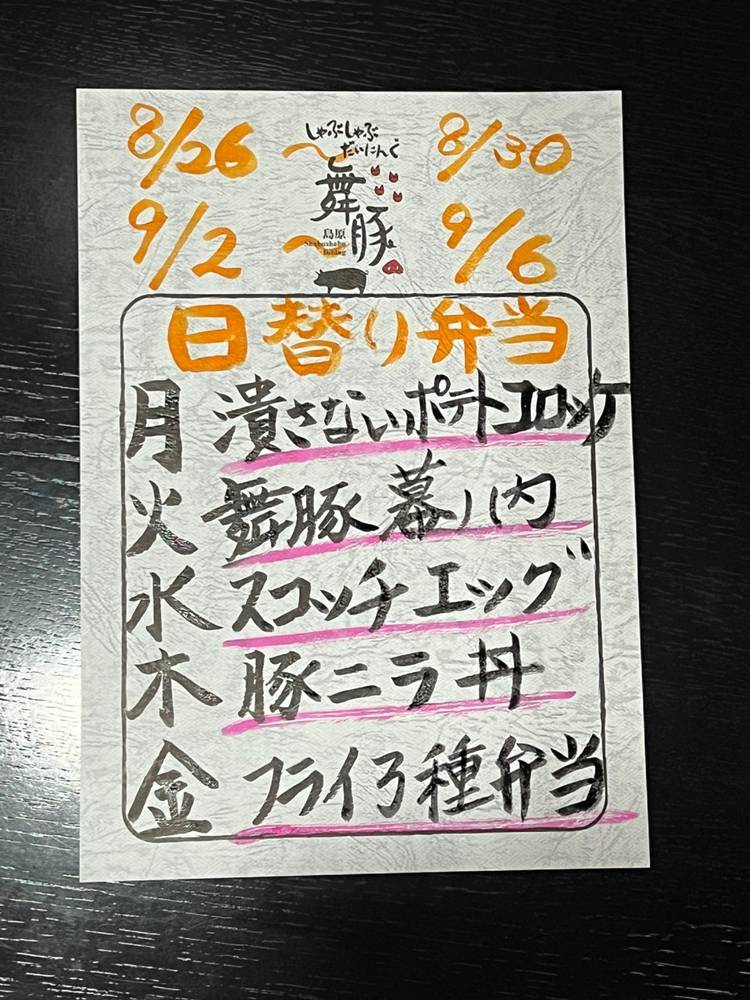 しゃぶしゃぶ
だいにんぐ
舞豚
島原
Shabushabu
Dining
8/26 〜 8/30
9/2 〜 9/6
日替り弁当
月 潰さないポテトコロッケ
火 舞豚幕ノ内
水 スコッチエッグ
木 豚ニラ丼
金 フライ3種弁当